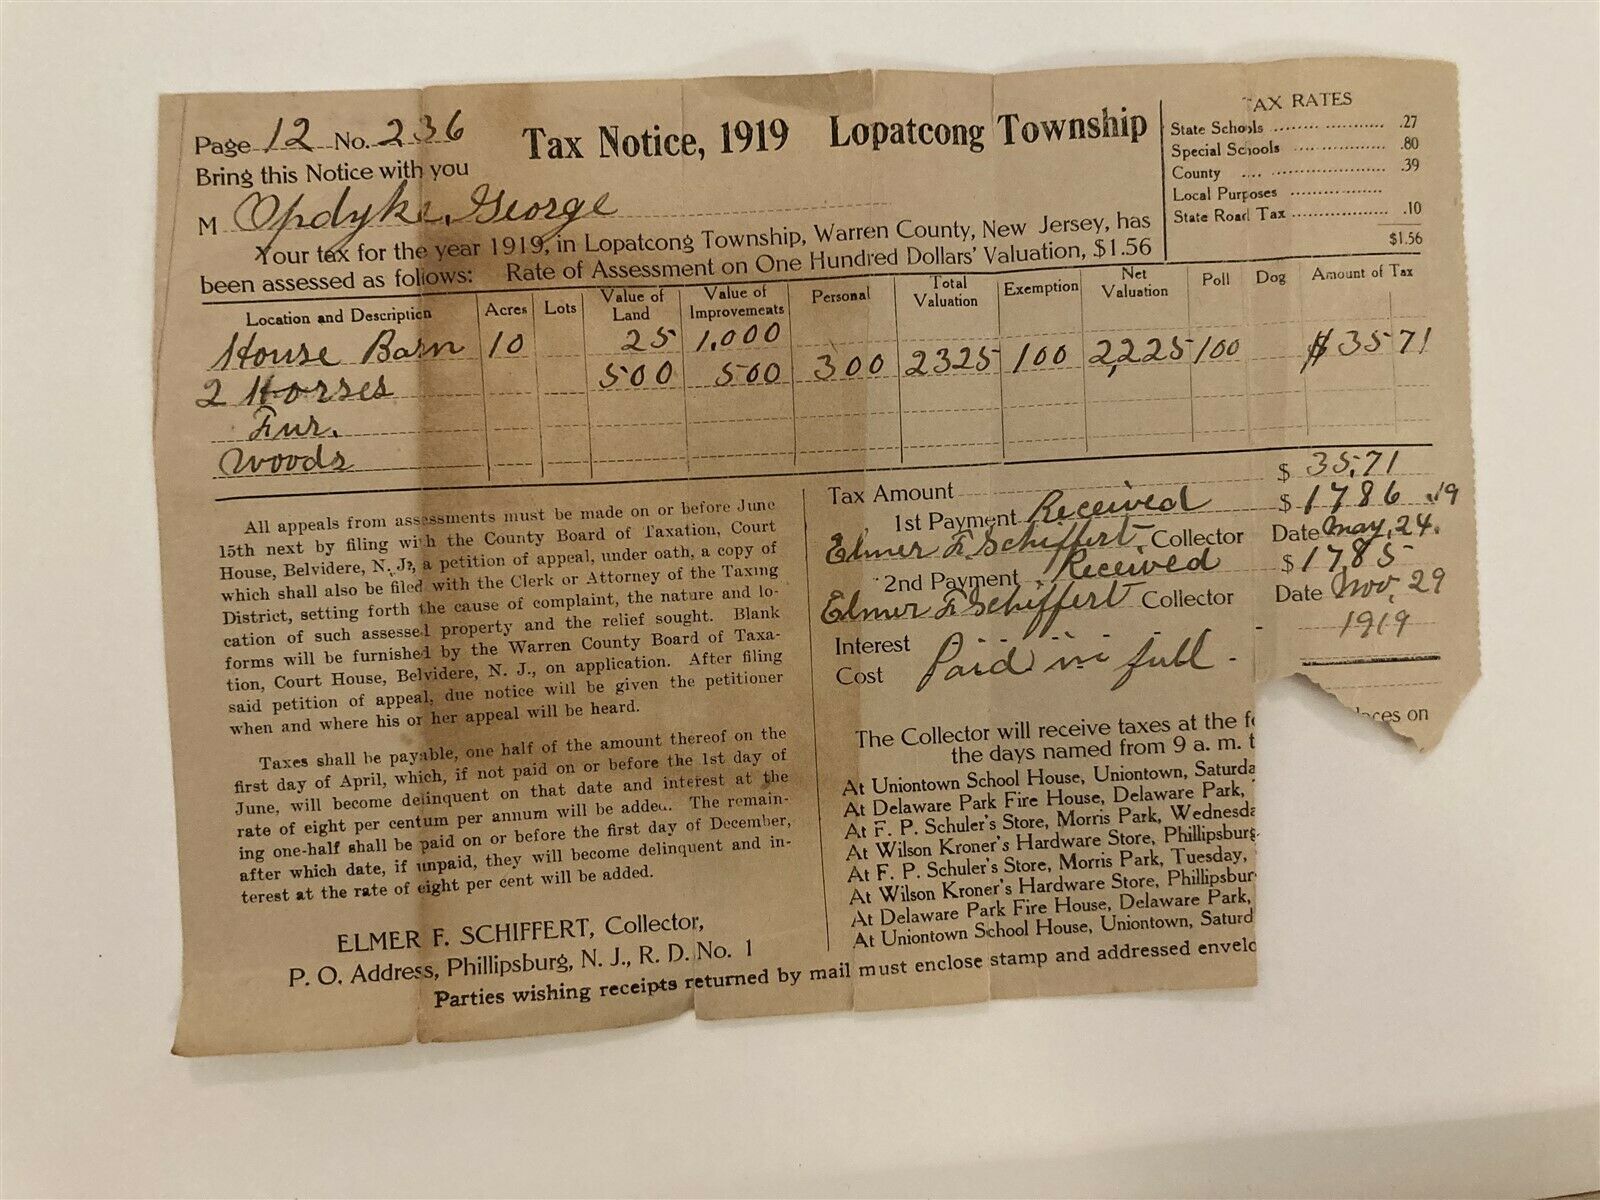 Page 12 No. 236
Tax Notice, 1919 Lopatcong Township
Bring this Notice with you
M Opdyke, George
Your tax for the year 1919, in Lopatcong Township, Warren County, New Jersey, has
been assessed as follows: Rate of Assessment on One Hundred Dollars' Valuation, $1.56
TAX RATES
State Schools .27
Special Schools .80
County .39
Local Purposes
State Road Tax .10
$1.56
Location and Description Acres Lots Value of Land Value of Improvements Personal Total Valuation Exemption Net Valuation Poll Dog Amount of Tax
House Barn 10 25 1,000
2 Horses 500 500 300 2325 100 2,225 100 $ 35 71
Fur.
Woods
All appeals from assessments must be made on or before June
15th next by filing with the County Board of Taxation, Court
House, Belvidere, N. J., a petition of appeal, under oath, a copy of
which shall also be filed with the Clerk or Attorney of the Taxing
District, setting forth the cause of complaint, the nature and lo-
cation of such assessed property and the relief sought. Blank
forms will be furnished by the Warren County Board of Taxa-
tion, Court House, Belvidere, N. J., on application. After filing
said petition of appeal, due notice will be given the petitioner
when and where his or her appeal will be heard.
Taxes shall be payable, one half of the amount thereof on the
first day of April, which, if not paid on or before the 1st day of
June, will become delinquent on that date and interest at the
rate of eight per centum per annum will be added. The remain-
ing one-half shall be paid on or before the first day of December,
after which date, if unpaid, they will become delinquent and in-
terest at the rate of eight per cent will be added.
ELMER F. SCHIFFERT, Collector,
P. O. Address, Phillipsburg, N. J., R. D. No. 1
Tax Amount $ 35.71
1st Payment Received $ 17 86 .19
Elmer F. Schiffert, Collector Date May, 24.
2nd Payment Received $ 17 85
Elmer F. Schiffert Collector Date Nov, 29
Interest 1919
Cost Paid in full -
The Collector will receive taxes at the fo laces on
the days named from 9 a. m. t
At Uniontown School House, Uniontown, Saturda
At Delaware Park Fire House, Delaware Park,
At F. P. Schuler's Store, Morris Park, Wednesda
At Wilson Kroner's Hardware Store, Phillipsburg
At F. P. Schuler's Store, Morris Park, Tuesday,
At Wilson Kroner's Hardware Store, Phillipsbur
At Delaware Park Fire House, Delaware Park,
At Uniontown School House, Uniontown, Saturd
Parties wishing receipts returned by mail must enclose stamp and addressed envelo